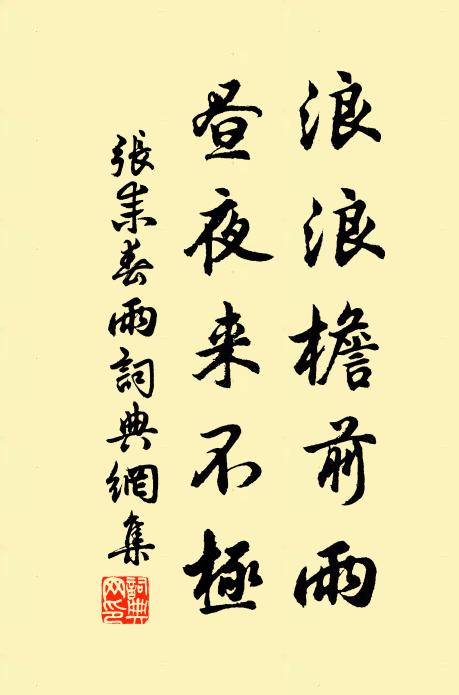 浪浪檐前雨
昼夜来不極
張耒春雨詞典網集
詞典網印